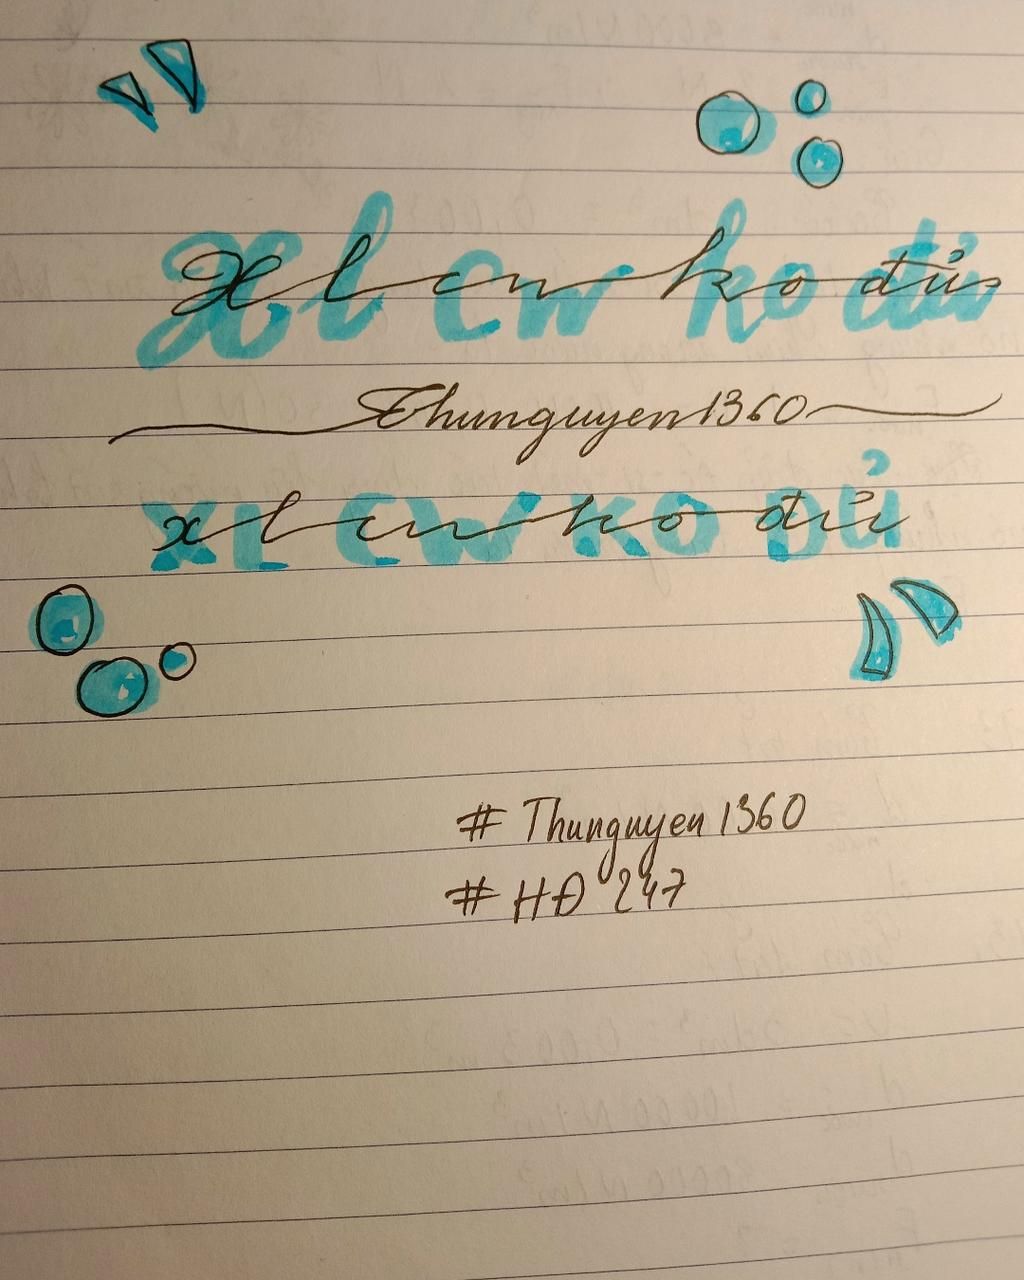 Xl cw ko đủ
Thunguyen1360
XL CW KO ĐỦ
# Thunguyen 1360
# HĐ 247